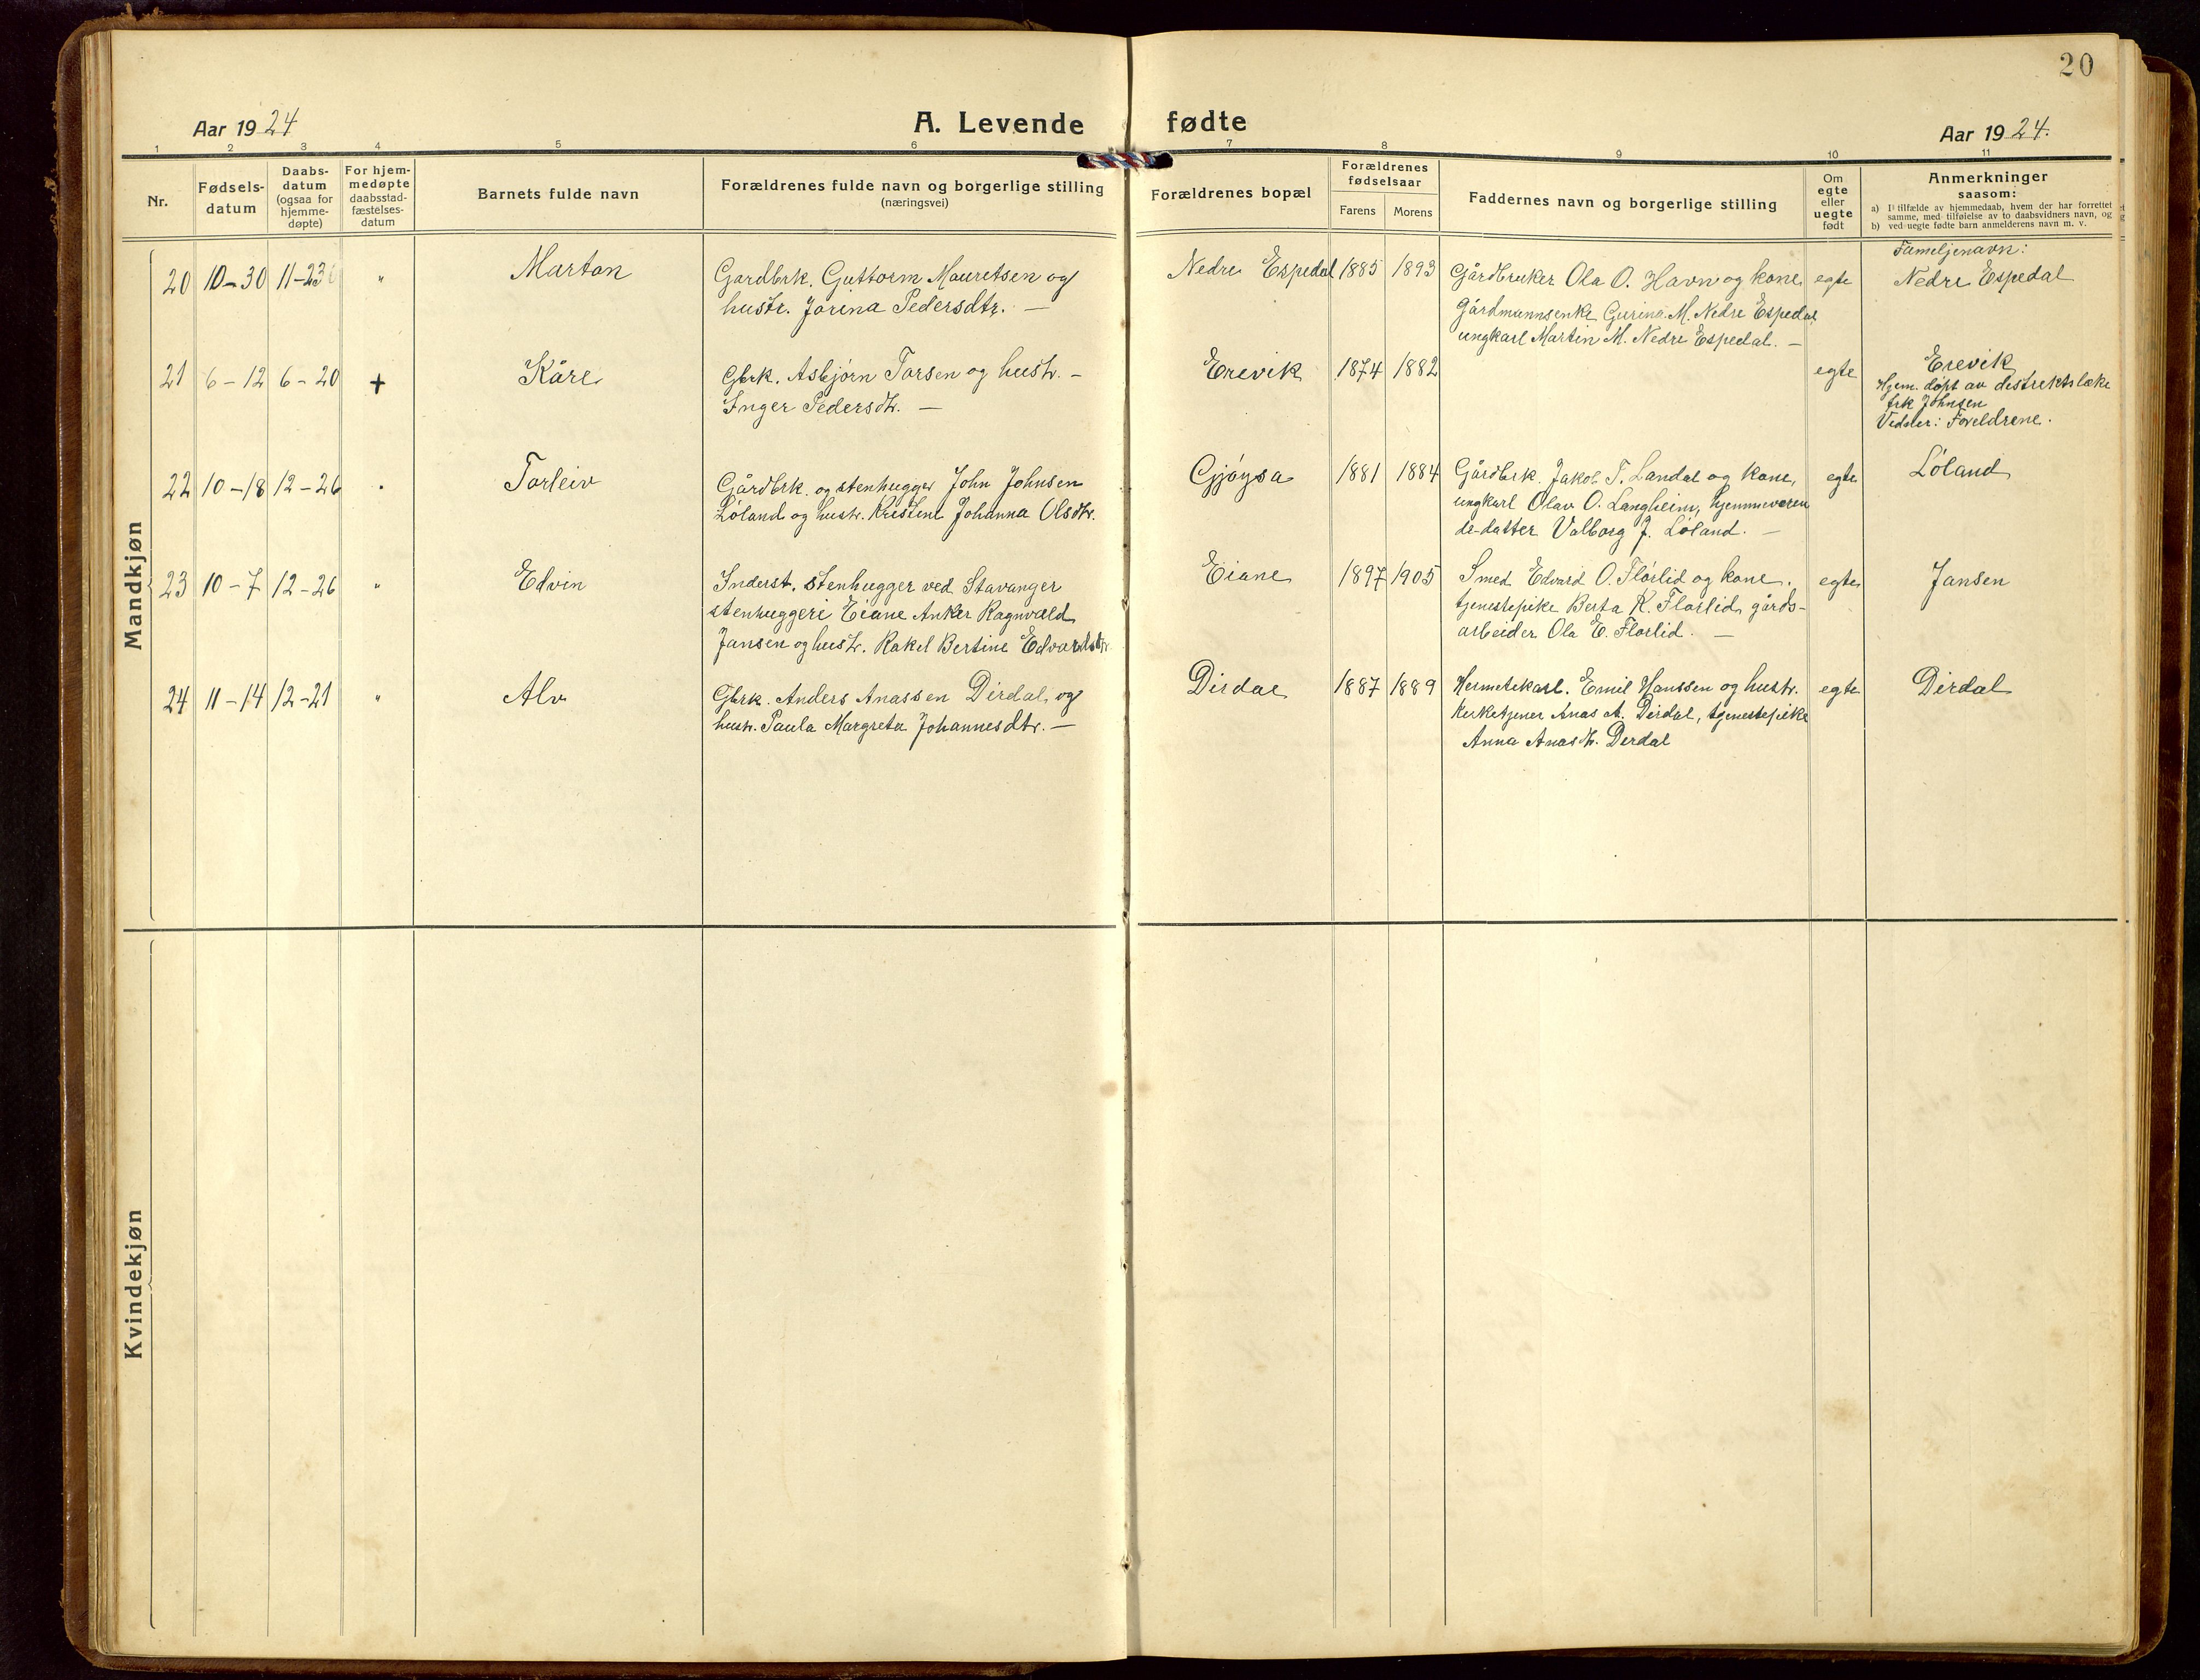 20
Aar 1924
A. Levende fødte
Aar 1924.
1 2 3 4 5 6 7 8 9 10 11
Nr.
Fødsels-
datum
Daabs-
datum
(ogsaa for
hjemme-
døpte)
For hjem-
medøpte
daabsstad-
fæstelses-
datum
Barnets fulde navn
Forældrenes fulde navn og borgerlige stilling
(næringsvei)
Forældrenes bopæl
Forældrenes
fødselsaar
Farens
Morens
Faddernes navn og borgerlige stilling
Om
egte
eller
uegte
født
Anmerkninger
saasom:
a) I tilfælde av hjemmedaab, hvem der har forrettet
samme, med tilføielse av to daabsvidners navn, og
b) ved uegte fødte barn anmelderens navn m. v.
Mandkjøn
20 10-30 11-23 "
Marton
Gardbrk. Guttorm Mauretsen og
hustr. Jorina Pedersdtr. —
Nedre Espedal 1885 1893
Gårdbruker Ola O. Havn og kone,
Gårdmannsenke Gurina M. Nedre Espedal,
ungkarl Martin M. Nedre Espedal. —
egte
Fameljenavn:
Nedre Espedal
21 6-12 6-20 +
Kåre
Gbrk. Asbjørn Torsen og hustr. —
Inger Pedersdtr. —
Erevik 1874 1882
egte
Erevik
Hjem. døpt av destrektslæke
frk Johnsen
Vidner: Foreldrene.
22 10-18 12-26
Torleiv
Gårdbrk. og stenhugger John Johnsen
Løland og hustr. Kristene Johanna Olsdtr.
Gjøysa 1881 1884
Gårdbrk. Jakob T. Landal og kone,
ungkarl Olav O. Langheim, hjemmeveren
de datter Valborg J. Løland. —
egte
Løland
23 10-7 12-26 "
Edvin
Inderst. stenhugger ved Stavanger
stenhuggeri Eiane Anker Ragnvald
Jansen og hustr. Rakel Bertine Edvardsdtr.
Eiane 1897 1905
Smed Edvard O. Flørlid og kone.
tjenestepike Berta K. Florlid, gårds-
arbeider Ola E. Florlid. —
egte
Jansen
24 11-14 12-21 "
Alv
Gbrk. Anders Anassen Dirdal, og
hustr. Paula Margreta Johannesdtr. —
Dirdal 1887 1889
Hermetekarl. Emil Hanssen og hustr.
kerketjener Anas A. Dirdal, tjenestepike
Anna Anasdtr. Derdal
egte
Dirdal
Kvindekjøn